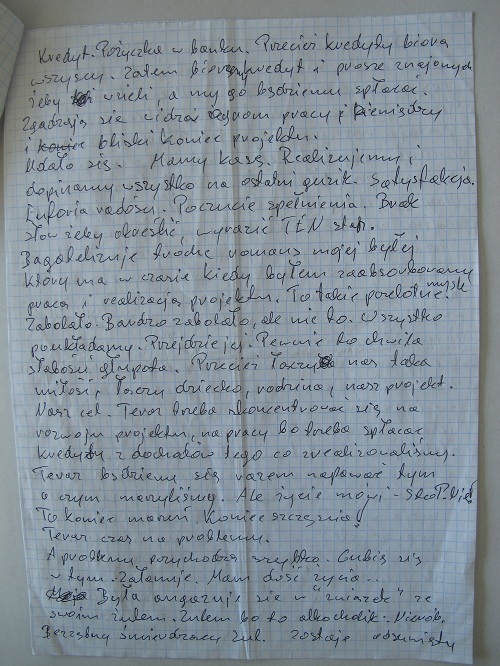 Kredyt. Pożyczka w banku. Przecież kredyty biorą
wszyscy. Zatem biorę kredyt i proszę znajomych
żeby wzieli a my go będziemy spłacać.
Zgadzają się widząc ogrom pracy i pieniędzy
i bliski koniec projektu.
Udało się. Mamy kasę. Realizujemy i
dopinamy wszystko na ostatni guzik. Satysfakcja.
Euforia radość. Poczucie spełnienia. Brak
słów żeby określić, wyrazić TEN stan.
Bagatelizuje trochę romans mojej byłej
który ma w czasie kiedy byłem zaabsorbowany
pracą i realizacją projektu. To takie przelotne. myślę
Zabolało. Bardzo zabolało, ale nic to. Wszystko
poukładamy. Przejdzie jej. Pewnie to chwila
słabości, głupota. Przecież łączy nas taka
miłość, łączy dziecko, rodzina, nasz projekt.
Nasz cel. Teraz trzeba skoncentrować się na
rozwoju projektu, na pracy bo trzeba spłacać
kredyty z dochodów tego co zrealizowaliśmy.
Teraz będziemy się razem napawać tym
o czym marzyliśmy. Ale życie mówi - Stop. Nie!
To koniec marzeń. Koniec szczęścia!
Teraz czas na problemy.
A problemy przychodzą szybko. Gubię się
w tym. Załamuje. Mam dość życia..
Była angażuje się w "związek" ze
swoim żulem. Żulem bo to alkoholik. Nierób.
Bezzębny śmierdzący żul. Zostaje odsunięty